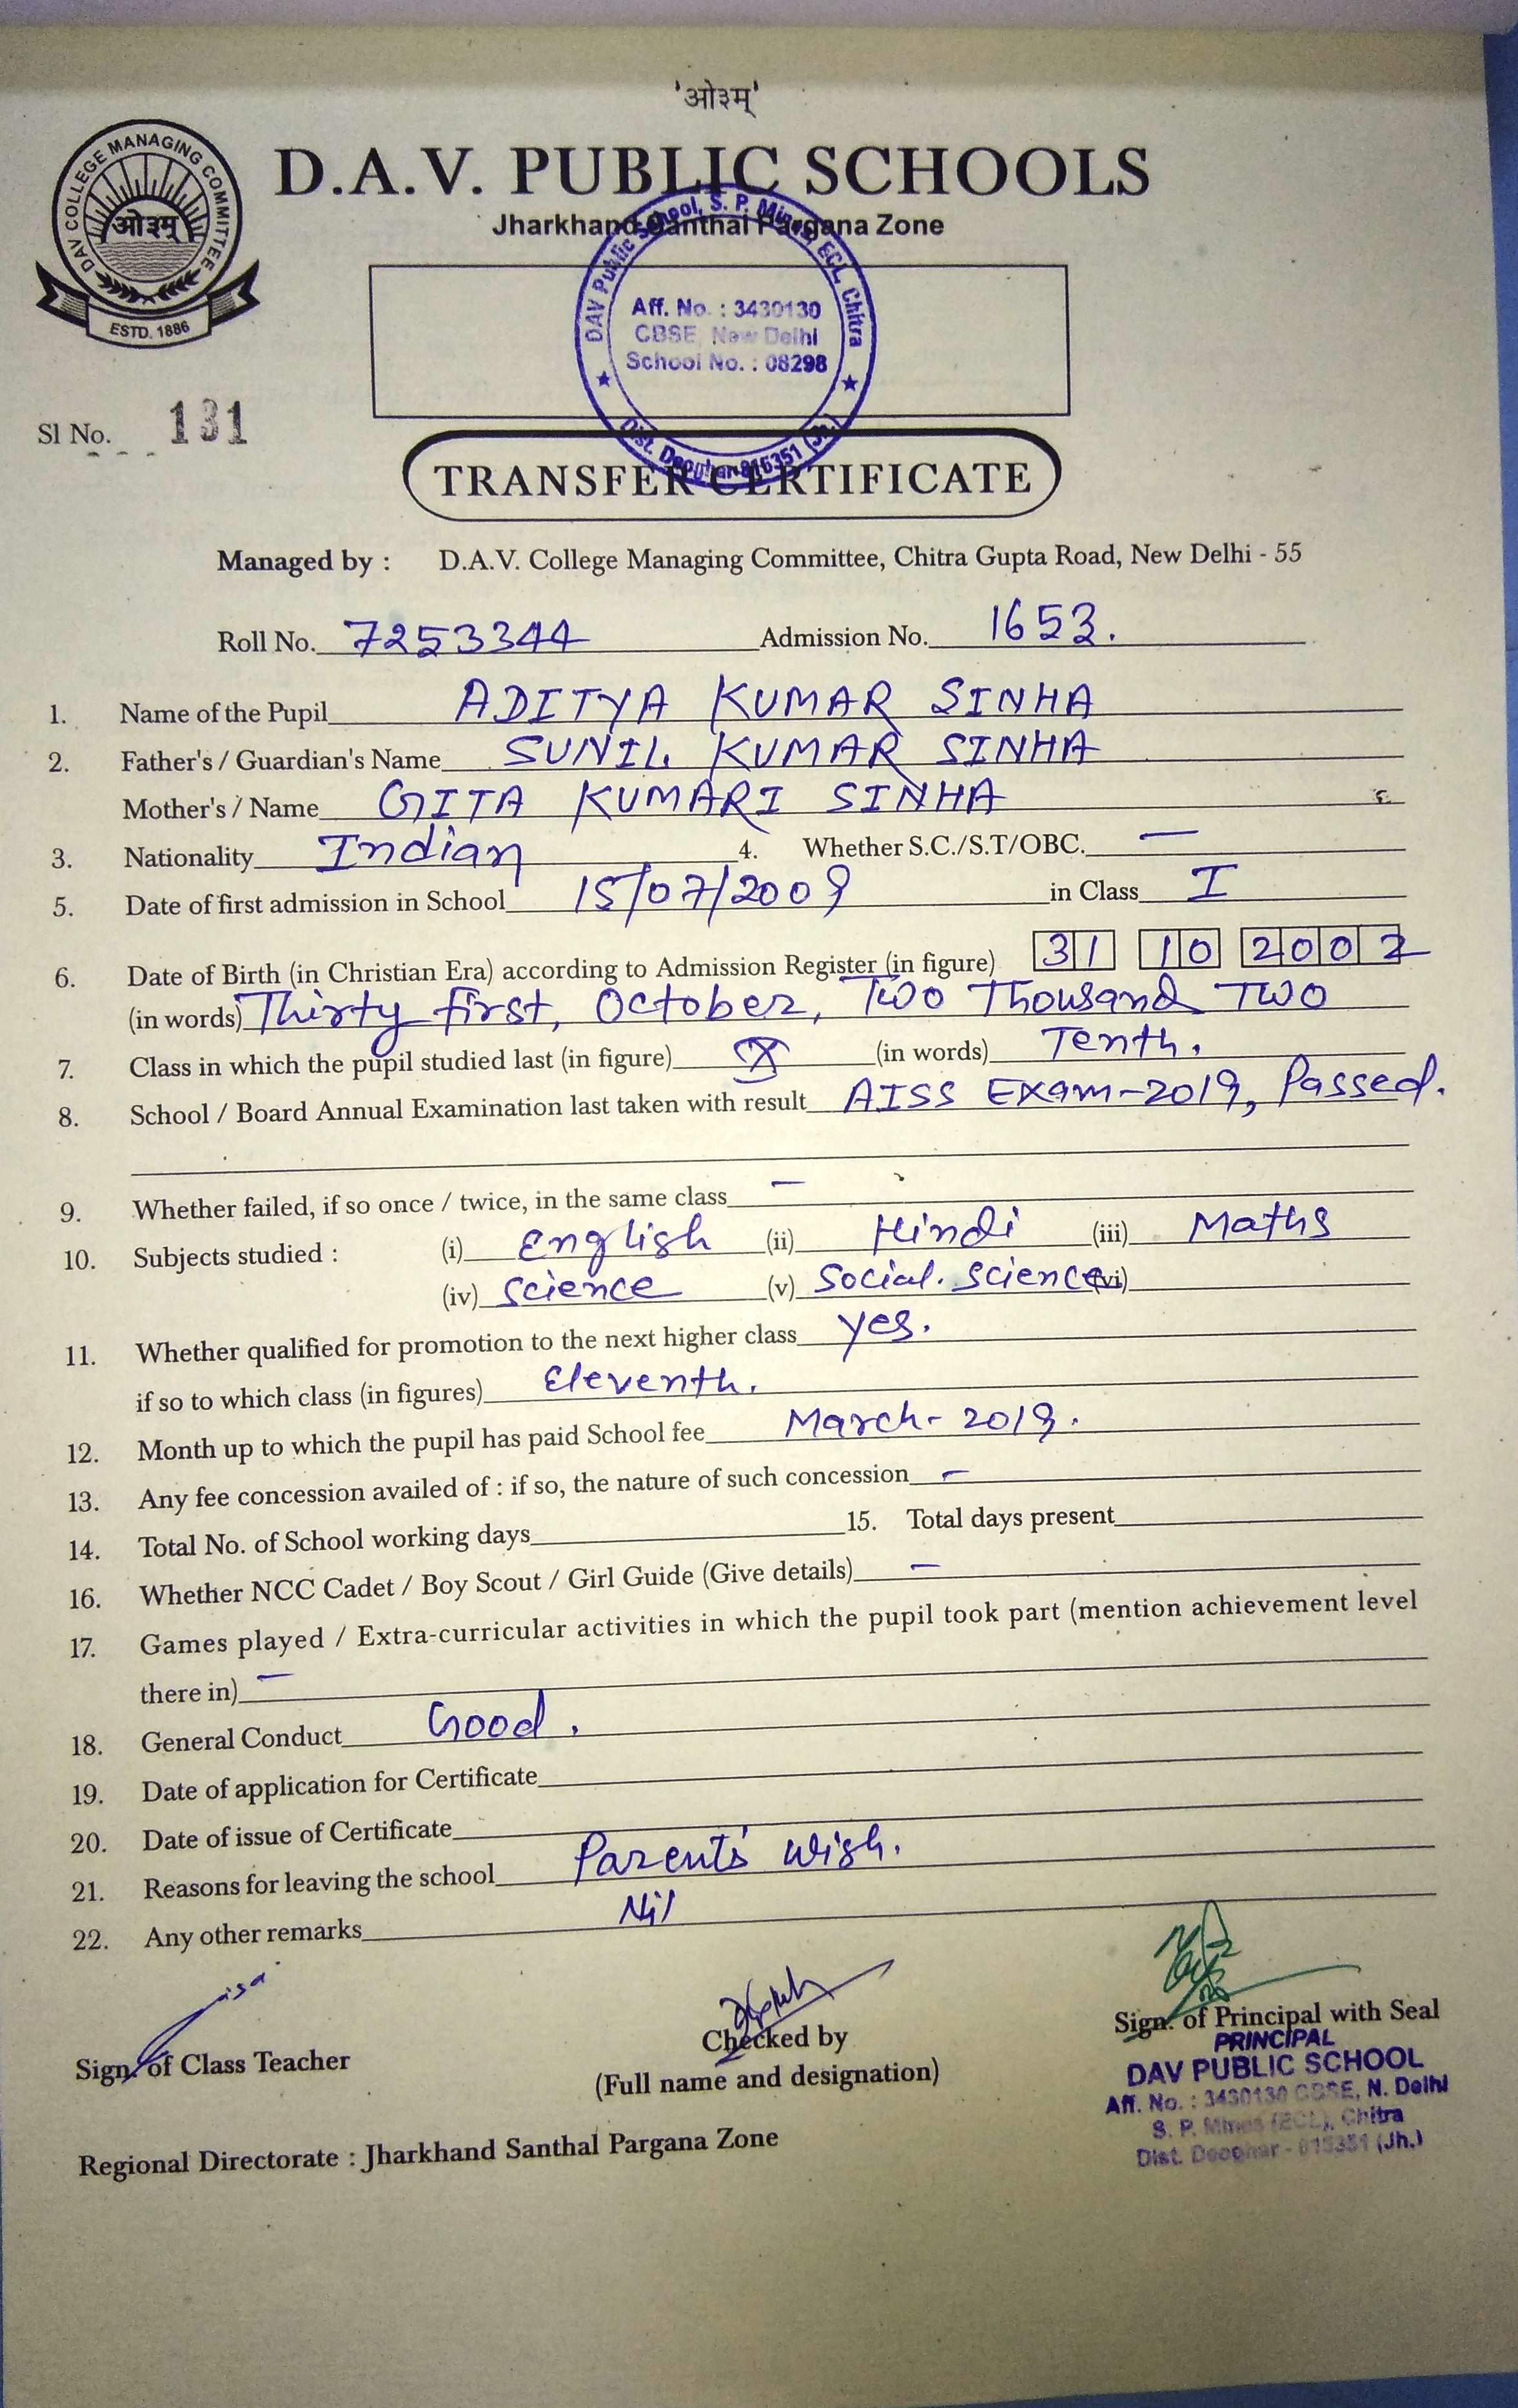 'ओ३म्'
DAV COLLEGE MANAGING COMMITTEE
ओ३म्
ESTD. 1886
D.A.V. PUBLIC SCHOOLS
Jharkhand Santhal Pargana Zone
DAV Public School, S. P. Mines, ECL, Chitra
Aff. No. : 3430130
CBSE, New Delhi
School No. : 08298
Dist. Deoghar-815351 (Jh.)
Sl No. 131
TRANSFER CERTIFICATE
Managed by : D.A.V. College Managing Committee, Chitra Gupta Road, New Delhi - 55
Roll No. 7253344 Admission No. 1653.
1. Name of the Pupil ADITYA KUMAR SINHA
2. Father's / Guardian's Name SUNIL KUMAR SINHA
Mother's / Name GITA KUMARI SINHA
3. Nationality Indian 4. Whether S.C./S.T/OBC. —
5. Date of first admission in School 15/07/2009 in Class I
6. Date of Birth (in Christian Era) according to Admission Register (in figure) 31 10 2002
(in words) Thirty first, October, Two Thousand Two
7. Class in which the pupil studied last (in figure) X (in words) Tenth.
8. School / Board Annual Examination last taken with result AISS Exam-2019, Passed.
9. Whether failed, if so once / twice, in the same class —
10. Subjects studied : (i) English (ii) Hindi (iii) Maths
(iv) Science (v) Social. Science (vi)
11. Whether qualified for promotion to the next higher class yes.
if so to which class (in figures) Eleventh.
12. Month up to which the pupil has paid School fee March- 2019.
13. Any fee concession availed of : if so, the nature of such concession —
14. Total No. of School working days 15. Total days present
16. Whether NCC Cadet / Boy Scout / Girl Guide (Give details) —
17. Games played / Extra-curricular activities in which the pupil took part (mention achievement level
there in) —
18. General Conduct Good.
19. Date of application for Certificate
20. Date of issue of Certificate
21. Reasons for leaving the school Parent's wish.
22. Any other remarks Nil
Sign. of Class Teacher
Checked by
(Full name and designation)
Sign. of Principal with Seal
PRINCIPAL
DAV PUBLIC SCHOOL
Aff. No. : 3430130 CBSE, N. Delhi
S. P. Mines (ECL), Chitra
Dist. Deoghar - 815351 (Jh.)
Regional Directorate : Jharkhand Santhal Pargana Zone